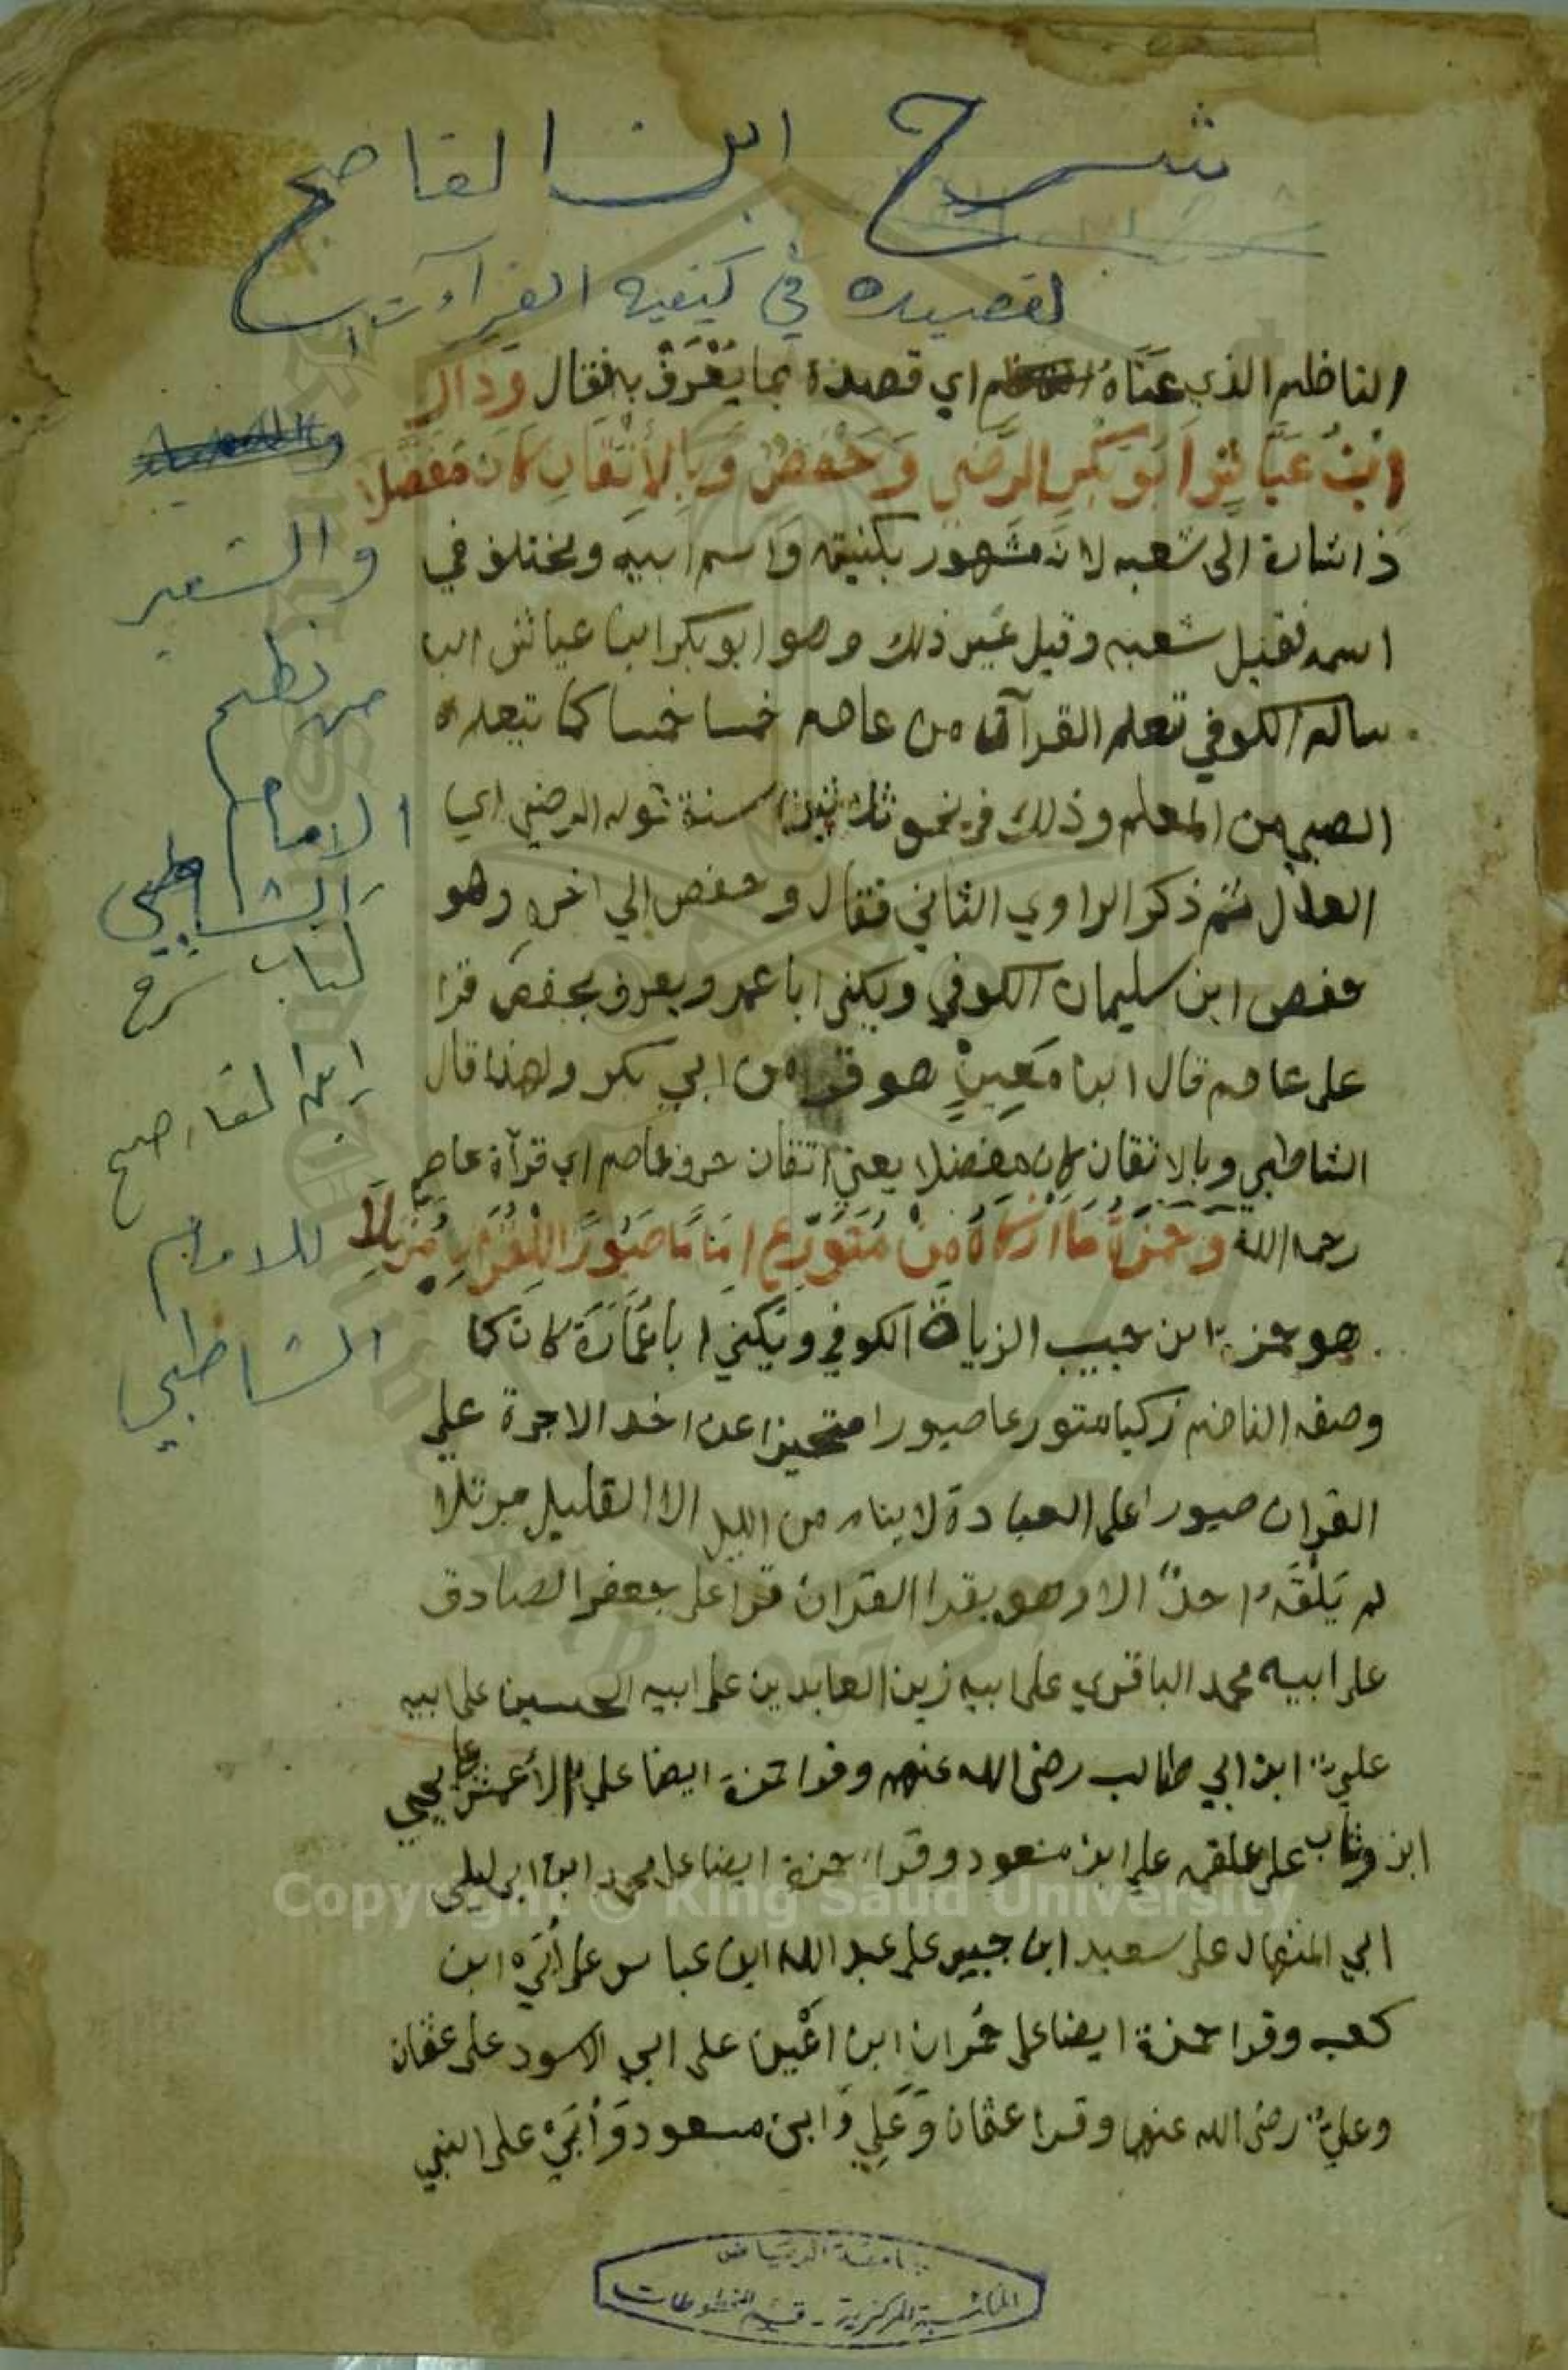 شرح ابن القاصح
لقصيده في كيفيه القرآءت
الناظم الذي عناه اي قصده بما يعرف به فقال وذاك
ابن عياش ابو بكر الرضي وحفص وبالإتقان كان مفضلا
ذا اشارة الى شعبه لانه مشهور بكنيته واسم ابيه ويختلف في
اسمه فقيل شعبه وقيل غير ذلك وهو ابو بكر ابن عياش ابن
سالم الكوفي تعلم القرآن من عاصم خمسا خمسا كما يتعلم
الصبي من المعلم وذلك في نحو ثلاثين سنة قوله الرضي اي
العدل ثم ذكر الراوي الثاني فقال وحفص الي اخره وهو
حفص ابن سليمان الكوفي ويكنى ابا عمر ويعرف بحفص قرا
على عاصم قال ابن معين هو قرا من ابي بكر ولهذا قال
الشاطبي وبالاتقان كان مفضلا يعني اتقان حرف عاصم اي قرآة عاصم
رحمه الله وحمزة ما ازكاه من متورع اماما صبورا للقران مرتلا
هو حمزة ابن حبيب الزياة الكوفي ويكني ابا عمارة كان كما
وصفه الناضم زكيا متورعا صبورا متحيزا عن اخد الاجرة علي
القران صبورا على العبادة لا ينام من الليل الا القليل مرتلا
لم يلقه احد الا وهو يقرا القران قرا على جعفر الصادق
على ابيه محمد الباقري على ابيه زين العابدين على ابيه الحسين على ابيه
علي ابن ابي طالب رضى الله عنهم وقرا حمزة ايضا علي الأعمش على يحيي
ابن وثاب على علقمه على ابن مسعود وقرا حمزة ايضا على محمد ابن ابي ليلى
ابي المنهال على سعيد ابن جبير على عبد الله ابن عباس على أبي ابن
كعب وقرا حمزة ايضا على حمران ابن اعين على ابي الاسود على عثمان
وعلي رضى الله عنهما وقرا عثمان وعلي وابن مسعود وأبي على النبي
والشعر
من نظم
الامام
الشاطبي
كتاب شرح
ابن القاصح
للامام
الشاطبي
جامعة الرياض
المكتبة المركزية - قسم المخطوطات
Copyright © King Saud University